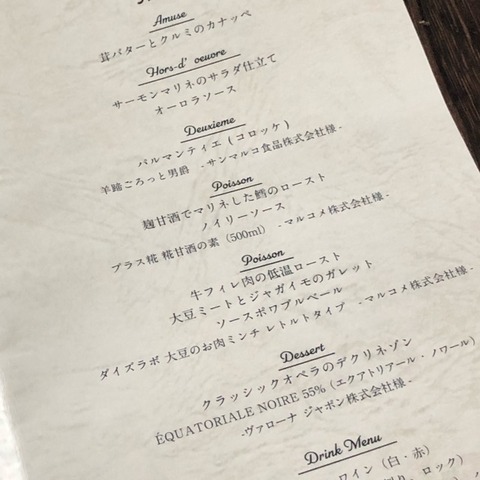 Amuse
茸バターとクルミのカナッペ
Hors-d' oeuore
サーモンマリネのサラダ仕立て
オーロラソース
Deuxieme
パルマンティエ (コロッケ)
羊蹄ころっと男爵 -サンマルコ食品株式会社様-
Poisson
麹甘酒でマリネした鱈のロースト
ノイリーソース
プラス糀 糀甘酒の素 (500ml) -マルコメ株式会社様-
Poisson
牛フィレ肉の低温ロースト
大豆ミートとジャガイモのガレット
ソースポワブルペール
ダイズラボ 大豆のお肉ミンチ レトルトタイプ -マルコメ株式会社様-
Dessert
クラッシックオペラのデクリネゾン
ÉQUATORIALE NOIRE 55% (エクアトリアール・ノワール)
-ヴァローナ ジャポン株式会社様-
Drink Menu
ワイン (白・赤)
ロック)